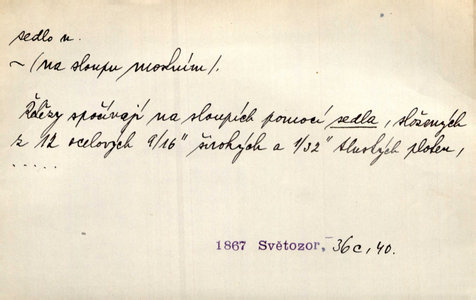 sedlo n.
~ (na sloupu mostním).
Řetězy spočívají na sloupích pomocí sedla, složených
z 12 ocelových 9/16" širokých a 9/32" tlustých ploten,
.....
1867 Světozor, 36c, 40.